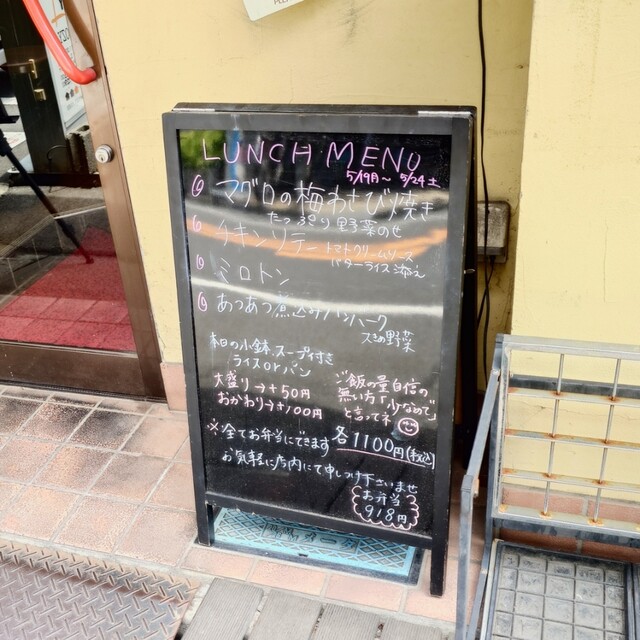 LUNCH MENU
5/19月〜 5/24土
マグロの梅わさび焼き
たっぷり野菜のせ
チキンソテー トマトクリームソース
バターライス添え
ミロトン
あつあつ煮込みハンバーグ
スキの野菜
本日の小鉢、スープ付き
ライスorパン
大盛り→+50円
おかわり→+100円
ご飯の量自信の
無い方「少なめで」
と言ってネ
※全てお弁当にできます 各1100円(税込)
お気軽に店内にて申しつけ下さいませ
お弁当
918円